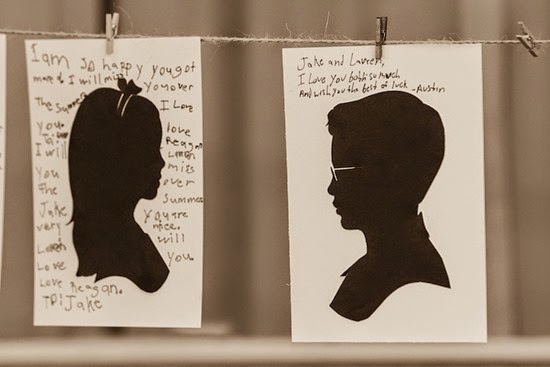 I am so happy you got
more & I will miss you over
The summer I Love
you. love
Reagan
I will Lauren
miss
You over
The summer
Jake you are
very nice.
Lauren will
Love you.
Love Reagan.
To: Jake
Jake and Lauren,
I Love you both so much
And wish you the best of luck -Austin